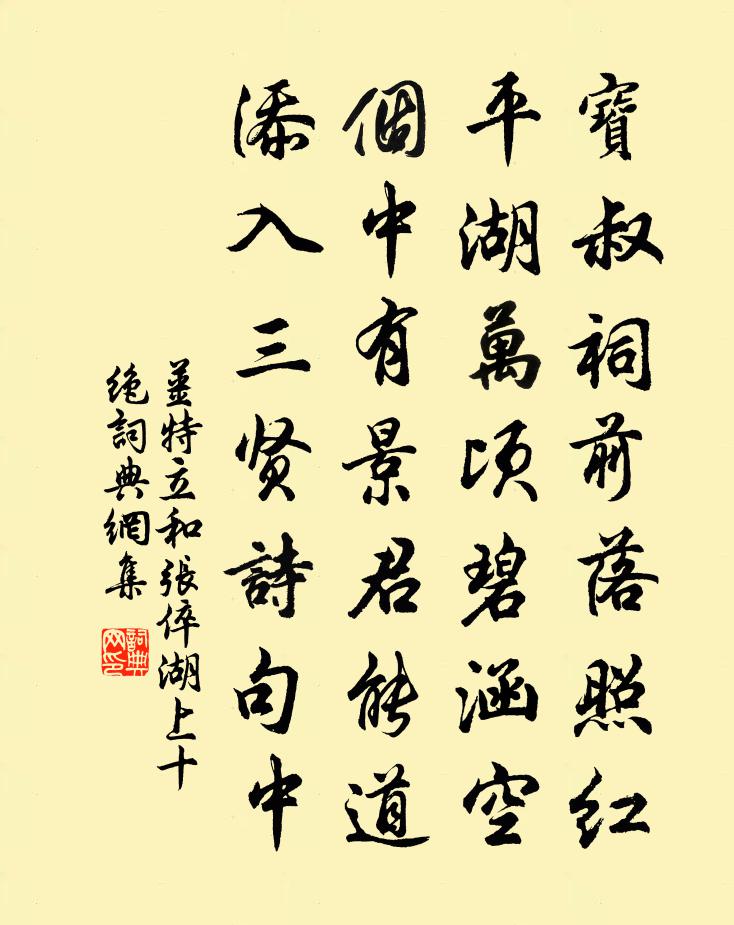 寶叔祠前落照红
平湖萬頃碧涵空
個中有景君能道
添入三贤詩句中
薑特立和張倅湖上十
绝詞典網集
詞典网印